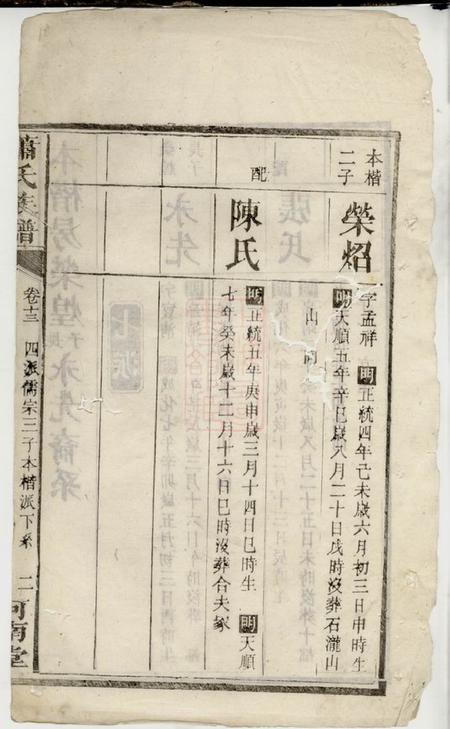 本楷
二子
榮炤
字孟祥 明正統四年己未歲六月初三日申時生
明天順五年辛巳歲八月二十日戌時沒葬石瀧山
山
配
陳氏
明正統五年庚申歲三月十四日巳時生 明天順
七年癸未歲十二月十六日巳時沒葬合夫冢
蕭氏族譜
卷十三 四派儒宗三子本楷派下系 二
河南堂